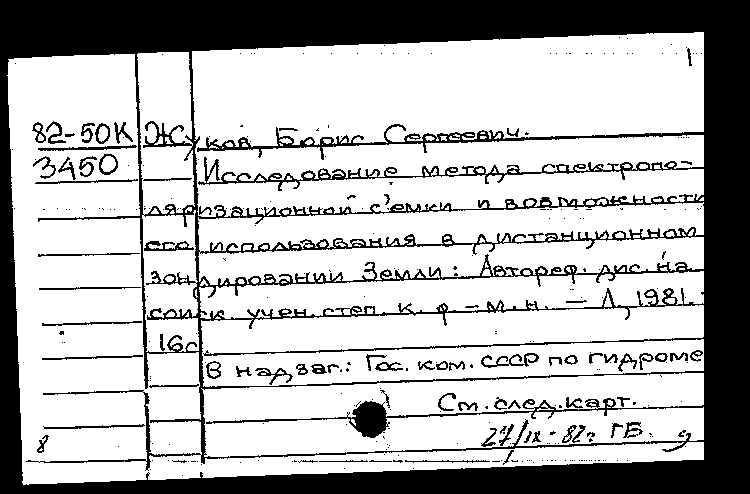 1
82-50К Жуков, Борис Сергеевич.
3450 Исследование метода спектропо-
ляризационной с'емки и возможности
его использования в дистанционном
зондировании Земли: Автореф. дис. на
соиск. учен. степ. к. ф.-м. н. - Л, 1981.-
16с
В надзаг.: Гос. ком. СССР по гидроме
См. след. карт.
27/IX-82г ГБ.
8